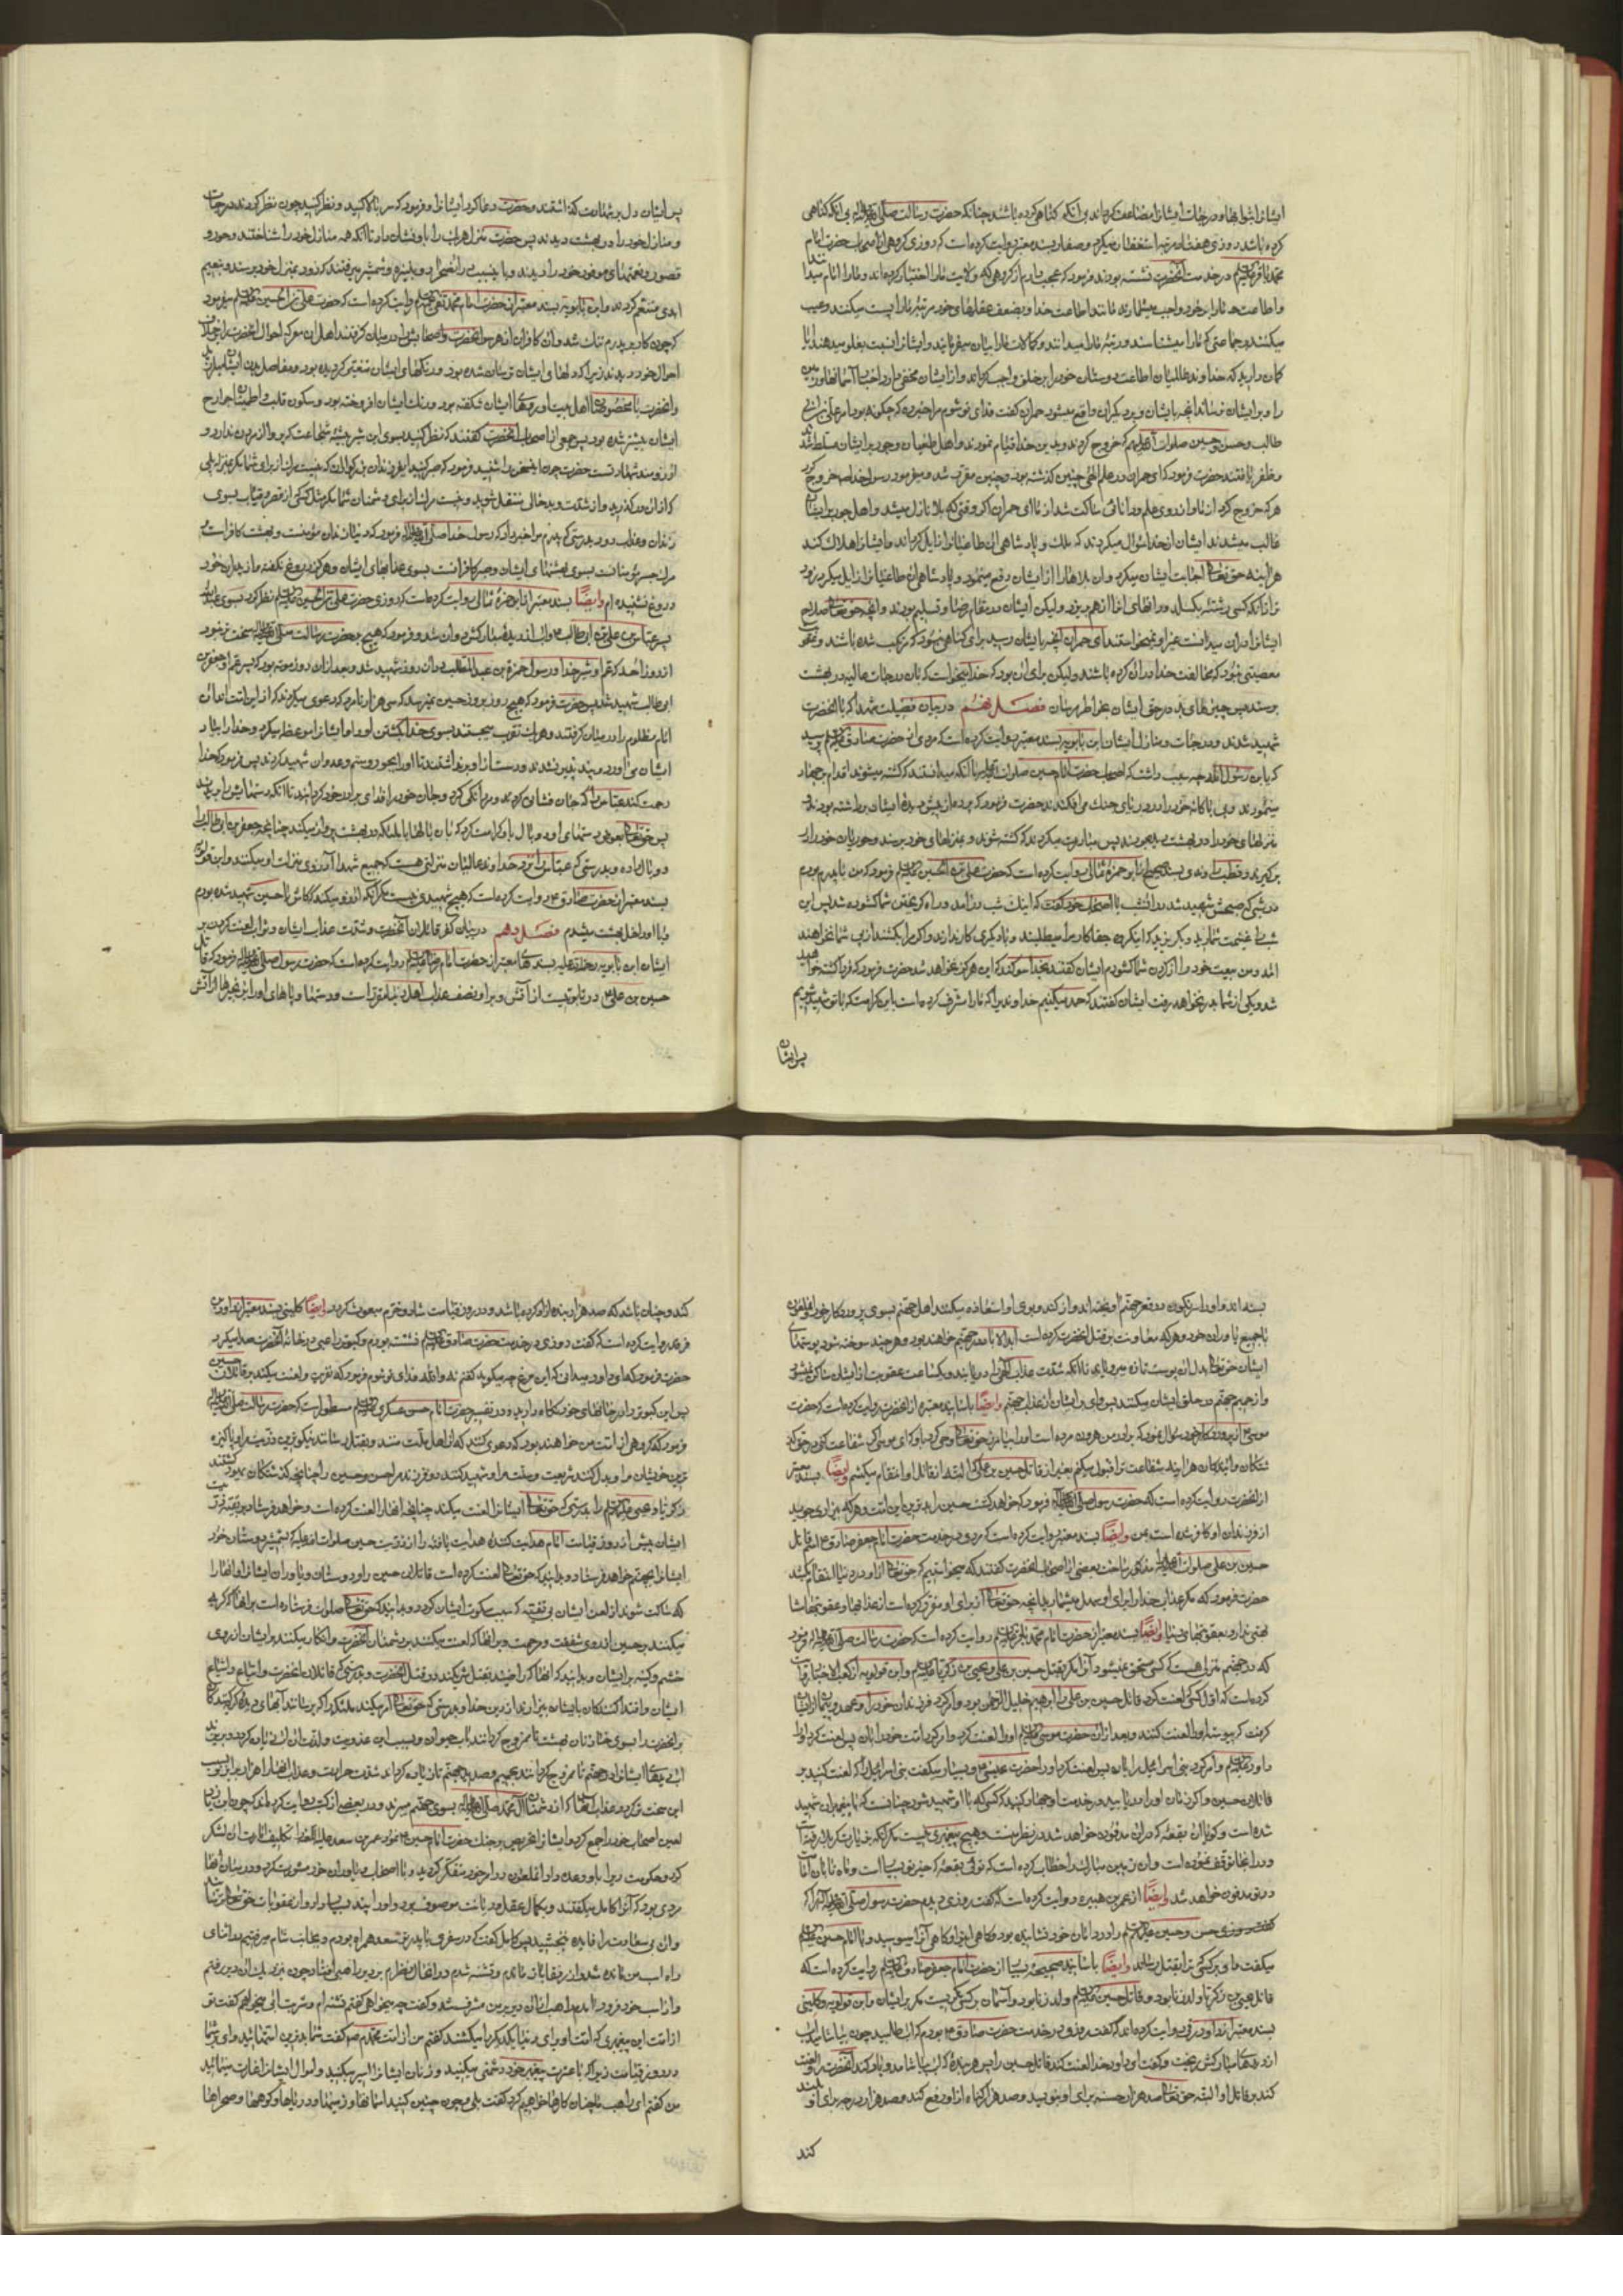 ایشانرا ثوابها و درجات ایشانرا مضاعف گرداند بی آنکه گناهی کرده باشند چنانکه حضرت رسالت صلی الله علیه و آله بی آنکه گناهی
کرده باشد روزی هفتاد مرتبه استغفار میکرد و صفار بسند معتبر روایت کرده است که روزی گروهی از اصحاب حضرت امام
محمد باقر علیه السلام در خدمت آنحضرت نشسته بودند فرمود که عجب دارم از گروهی که ولایت ما را اختیار کرده‌اند و ما را امام میدانند
و اطاعت ما را بر خود واجب میشمارند مانند اطاعت خدا و بضعف عقلهای خود مرتبه ما را پست میکنند و عیب
میکنند جماعتی که ما را میشناسند و رتبه ما را میدانند و کمالات ما را بیان میفرمایند و ایشانرا نسبت بغلو میدهند آیا
گمان دارید که خداوند عالمیان اطاعت دوستان خود را بر خلق واجب گرداند و از ایشان مخفی دارد اخبار آسمانها و زمین
را و بر ایشان نرساند آنچه بایشان و بر دیگران واقع میشود حمران گفت فدای تو شوم مرا خبر ده که چگونه بود امر علی بن ابی
طالب و حسن و حسین صلوات الله علیهم که خروج کردند و بدین خدا قیام نمودند و اهل طغیان و جور بر ایشان مسلط شدند
و ظفر یافتند حضرت فرمود که ای حمران در علم الهی چنین گذشته بود و چنین مقرر شد و میفرمود رسول خدا ص خروج کرد
هر که خروج کرد از ما و از روی علم و دانائی ساکت شد از ما ای حمران اگر وقتی که بلا نازل میشد و اهل جور بر ایشان
غالب میشدند ایشان از خدا سؤال میکردند که ملک و پادشاهی آن طاغیان را زایل گرداند و ایشانرا هلاک کند
هر آینه حق تعالی اجابت ایشان میکرد و آن بلاها را از ایشان دفع مینمود و پادشاهی آن طاغیان را زایل میکرد زود
تر از آنکه کسی رشته بگسلد و دانهای آنرا از هم بریزد ولیکن ایشان در مقام رضا و تسلیم بودند و آنچه حق تعالی صلاح
ایشانرا در آن میدانست غیر او نمیخواستند ای حمران آنچه بایشان رسید برای گناهی نبود که مرتکب شده باشند و
معصیتی نبود که مخالفت خدا در آن کرده باشند ولیکن برای آن بود که خدا میخواست که بآن درجات عالیه در بهشت
برسند پس چیزهای بد در حق ایشان بخاطر مرسان فصل نهم در بیان فضیلت شهدا که با آنحضرت
شهید شدند و درجات و منازل ایشان ابن بابویه بسند معتبر روایت کرده است که مردی از حضرت صادق علیه السلام پرسید
که یابن رسول الله چه سبب داشت که اصحاب حضرت امام حسین صلوات الله علیه با آنکه میدانستند که کشته میشوند اقدام بر جهاد
مینمودند و بی باکانه خود را در دریای جنگ می‌افکندند حضرت فرمود که پرده از پیش دیده ایشان برداشته بودند
منزلهای خود را در بهشت میدیدند پس مبادرت میکردند که کشته شوند و بمنزلهای خود برسند و حوریان خود را در
بر گیرند و قطب راوندی بسند صحیح از ابوحمزه ثمالی روایت کرده است که حضرت علی بن الحسین علیه السلام فرمود که من با پدرم بودم
در شبی که صبحش شهید شد در آنشب با اصحاب خود گفت که اینک شب در آمد و راه گریختن شما گشوده شد پس این
شب را غنیمت شمارید و بگریزید که اینگروه جفاکار مرا میطلبند و با دیگری کار ندارند و اگر مرا بکشند از پی شما نخواهند
آمد و من بیعت خود را از گردن شما گشودم ایشان گفتند بخدا سوگند که این هرگز نخواهد شد حضرت فرمود که فردا کشته خواهید
شد و یکی از شما بدر نخواهد رفت ایشان گفتند که حمد میکنیم خداوندیرا که ما را مشرف کرده است باین کرامت که با تو شهید شویم
پس ایشان
پس ایشان دل بر شهادت گذاشتند و حضرت دعا کرد ایشانرا و فرمود که سر بالا کنید و نظر کنید چون نظر کردند درجات
و منازل خود را در بهشت دیدند پس حضرت منزل هر یک را باو نشان داد تا آنکه همه منازل خود را شناختند و حور و
قصور و نعیمهای موفور خود را دیدند و باین سبب رفتند که زود بمنزل خود برسند و بنعیم
ابدی متنعم گردند و ابن بابویه بسند معتبر از حضرت امام محمد تقی علیه السلام روایت کرده است که حضرت علی بن الحسین علیه السلام میفرمود
که چون کار بر پدرم تنگ شد و آن کافران از هر سو آنحضرت و اصحابش را در میان گرفتند اهل آن معرکه احوال آنحضرت را بخلاف
احوال خود دیدند زیرا که دلهای ایشان ترسان شده بود و رنگهای ایشان متغیر گردیده بود و مفاصل بدن ایشان میلرزید
و آنحضرت با مخصوصان اهل بیت او روهای ایشان شکفته بود و رنگ ایشان افروخته بود و سکون قلب و اطمینان جوارح
ایشان بیشتر شده بود پس جمعی از اصحاب آنحضرت گفتند که نظر کنید بسوی این شیر بیشه شجاعت که پروا از مردن ندارد و
آرزومند شهادتست حضرت چون این سخن را شنید فرمود که صبر کنید ای فرزندان بزرگواران که نیست مرگ از برای شما مگر بمنزله پلی
که از آن در گذرید و از شدت و بدحالی منتقل شوید و نیست مرگ از برای دشمنان شما مگر مثل کسی که از قصر و قباب بسوی
زندان و عذاب رود بدرستی که پدرم مرا خبر داد که رسول خدا صلی الله علیه و آله فرمود که دنیا زندان مؤمنست و بهشت کافر است
مرگ جسر مؤمنانست بسوی بهشتهای ایشان و جسر کافرانست بسوی عذابهای ایشان و هرگز دروغ نگفته‌ام و از پدران خود
دروغ نشنیده‌ام و ایضاً بسند معتبر از ابوحمزه ثمالی روایت کرده است که روزی حضرت علی بن الحسین علیه السلام نظر کرد بسوی عبدالله
پسر عباس بن علی بن ابی طالب ع و آب از دیده مبارکش روان شد و فرمود که هیچ بر حضرت رسالت صلی الله علیه و آله سخت تر نبود
از روز احد که عم او شیر خدا و رسول حمزة بن عبدالمطلب در آن روز شهید شد و بعد از آن روز موته بود که پسر عم او جعفر بن
ابی طالب شهید شد پس حضرت فرمود که هیچ روز بروز حسین نمیرسد که سی هزار نامرد که دعوی میکردند که از این امت‌اند آن
امام مظلوم را در میان گرفتند و هر یک تقرب میجستند بسوی خدا بکشتن او و او ایشانرا موعظه میکرد و خدا را بیاد
ایشان می‌آورد و پند نپذیرفتند و دست از او برنداشتند تا او را بجور و ستم و عدوان شهید کردند پس فرمود که خدا
رحمت کند عباس را که جان فشانی کرد و مردانگی کرد و جان خود را فدای برادر خود گردانید تا آنکه دستهایش را بریدند
پس حق تعالی بعوض دستهای او دو بال باو کرامت کرد که بآن بالها با ملائکه در بهشت پرواز میکند چنانچه جعفر بن ابی طالب را
دو بال داده و بدرستی که عباس را نزد خداوند عالمیان منزلتی هست که جمیع شهدا آرزوی منزلت او میکنند و ابن قولویه
بسند معتبر از حضرت صادق ع روایت کرده است که هیچ شهیدی نیست مگر آنکه آرزو میکند که کاش با حسین شهید شده بودم
و با او داخل بهشت میشدم فصل دهم در بیان کفر قاتلان آنحضرت و شدت عذاب ایشان و ثواب لعنت کردن بر
ایشان ابن بابویه رحمة الله علیه بسندهای معتبر از حضرت امام رضا علیه السلام روایت کرده است که حضرت رسول صلی الله علیه و آله فرمود که قاتل
حسین بن علی ع در تابوتیست از آتش و بر او نصف عذاب اهل دنیا مقرر است و دستها و پاهای او را بزنجیرها از آتش
بسته‌اند و او را سرنگون در قعر جهنم آویخته‌اند و از گند و بوی او استعاذه میکنند اهل جهنم بسوی پروردگار خود
با جمیع یاوران خود و هر که معاونت بر قتل آنحضرت کرده است ابدالآباد در جهنم خواهند بود و هر چند سوخته شود پوستهای
ایشان حق تعالی بدل آن پوست تازه میرویاند تا آنکه شدت عذاب الهی را دریابند و یکساعت عقوبت از ایشان ساکن نمیشود
و از حمیم جهنم در حلق ایشان میکنند پس وای بر ایشان از عذاب جهنم و ایضاً باسانید معتبره از آنحضرت روایت کرده است که حضرت
موسی ع از پروردگار خود سؤال نمود که برادر من هرون مرده است او را بیامرز حق تعالی وحی کرد باو که ای موسی اگر شفاعت کنی در حق گذ
شتگان و آیندگان هر آینه شفاعت ترا قبول میکنم بغیر از قاتل حسین بن علی که البته از قاتل او انتقام میکشم و ایضاً بسند معتبر
از آنحضرت روایت کرده است که حضرت رسول صلی الله علیه و آله فرمود که خواهد کشت حسین را بدترین این امت و هر که بیزاری جوید
از فرزندان او کافر شده است بمن و ایضاً بسند معتبر روایت کرده است که مردی در خدمت حضرت امام جعفر صادق ع از قاتل
حسین بن علی صلوات الله علیه مذکور ساخت بعضی از اصحاب آنحضرت گفتند که میخواستیم که حق تعالی از او در دنیا انتقام بکشد
حضرت فرمود که مگر عذاب خدا را برای او سهل میشمارید آنچه حق تعالی از برای او مقرر کرده است از عذابها و عقوبتها
نسبتی ندارد بعقوبتهای دنیا و ایضاً بسند معتبر از حضرت امام محمد باقر علیه السلام روایت کرده است که حضرت رسالت صلی الله علیه و آله فرمود
که در جهنم منزلی هست که کسی مستحق نمیشود آنرا مگر بقتل حسین بن علی و یحیی بن زکریا علیه السلام و ابن قولویه از کعب الاحبار روایت
کرده است که اول کسی که لعنت کرد قاتل حسین بن علی را ابراهیم خلیل الرحمن بود و امر کرد فرزندان خود را و عهد و پیمان از ایشان
گرفت که پیوسته او را لعنت کنند و بعد از آن حضرت موسی علیه السلام او را لعنت کرد و امر کرد امت خود را بآن پس لعنت کرد او را
داود علیه السلام و امر کرد بنی اسرائیل را بآن پس لعنت کرد او را حضرت عیسی ع و بسیار میگفت بنی اسرائیل را که لعنت کنید بر
قاتلان حسین و اگر زمان او را دریابید در خدمت او جهاد کنید که کسی که با او شهید شود چنانست که با پیغمبران شهید
شده است و گویا آن بقعه که در آن مدفون خواهد شد در نظر منست و هیچ پیغمبری نیست مگر آنکه بزیارت کربلا رفته است
و در آنجا توقف نموده است و آن زمین مبارک را خطاب کرده است که توئی بقعه که خیر تو بسیار است و ماه تابان امامت
در تو مدفون خواهد شد و ایضاً از عمر بن هبیره روایت کرده است که گفت روزی دیدم حضرت رسول صلی الله علیه و آله را که
حسن و حسین علیهما السلام را در دامان خود نشانیده بود و گاهی این را و گاهی آنرا میبوسید و با امام حسین علیه السلام
میگفت وای بر کسی که ترا بقتل رساند و ایضاً باسانید صحیحه بسیار از حضرت امام جعفر صادق علیه السلام روایت کرده است که
قاتل یحیی بن زکریا ولدالزنا بود و قاتل حسین علیه السلام ولدالزنا بود و آسمان بر کسی نگریست مگر بر ایشان و ابن قولویه و کلینی
بسند معتبر از داود رقی روایت کرده‌اند که گفت روزی در خدمت حضرت صادق ع بودم که آب طلبید چون بیاشامید آب
از دیدهای مبارکش ریخت و گفت ای داود خدا لعنت کند قاتل حسین را پس هر بنده که آب بیاشامد و یاد کند آنحضرت را و لعنت
کند بر قاتل او البته حق تعالی صد هزار حسنه برای او بنویسد و صد هزار گناه از او رفع کند و صد هزار درجه برای او بلند
کند
کند و چنان باشد که صد هزار بنده آزاد کرده باشد و در روز قیامت شاد و خرم مبعوث گردد و ایضاً کلینی بسند معتبر از داود بن
فرقد روایت کرده است که گفت روزی در خدمت حضرت صادق علیه السلام نشسته بودم و کبوتر راعبی در خانه آنحضرت صدا میکرد
حضرت فرمود که ای داود میدانی که این مرغ چه میگوید گفتم نه والله فدای تو شوم فرمود که نفرین و لعنت میکند بر قاتلان حسین
پس این کبوتر را در خانهای خود نگاه دارید و در تفسیر حضرت امام حسن عسکری علیه السلام مسطور است که حضرت رسالت صلی الله علیه و آله
فرمود که گروهی از امت من خواهند بود که دعوی کنند که از اهل ملت منند و بقتل رسانند نیکوترین ذریت مرا و پاکیزه
ترین خویشان مرا و بدل کنند شریعت و سنت مرا و شهید کنند دو فرزند مرا حسن و حسین را چنانچه گذشتگان یهود کشتند
زکریا و یحیی علیه السلام را بدرستی که حق تعالی ایشانرا لعنت میکند چنانچه آنها را لعنت کرده است و خواهد فرستاد بر بقیه ذریت
ایشان پیش از روز قیامت امام هدایت کننده هدایت یافته را از ذریت حسین صلوات الله علیه که بشمشیر دوستان خود
ایشانرا بجهنم خواهد فرستاد و بدانید که حق تعالی لعنت کرده است قاتلان حسین را و دوستان و یاوران ایشانرا و آنها را
که ساکت شوند از لعن ایشان بی تقیه که سبب سکوت ایشان گردد و بدانید که حق تعالی صلوات فرستاده است بر آنها که گریه
میکنند بر حسین از روی شفقت و مرحمت و بر آنها که لعنت میکنند بر دشمنان آنحضرت و انکار میکنند بر ایشان از روی
خشم و کینه بر ایشان و بدانید که آنها که راضیند بقتل شریکند در قتل آنحضرت و بدرستی که قاتلان آنحضرت و اتباع و اشیاع
ایشان و اقتدا کنندگان بایشان بیزارند از دین خدا و بدرستی که حق تعالی امر میکند ملائکه را که برسانند آبهای دیده گریه کنندگان
بر آنحضرت را بسوی خازنان بهشت تا ممزوج گردانند بآب حیوان و بسبب این عذوبت و لذت آن آب زیاده گردد و بریزند
آب دیدهای ایشانرا در جهنم تا ممزوج گردانند بحمیم و صدید جهنم تا زیاده گرداند شدت حرارت و عذاب آنها را هزار برابر و بسبب
این سخت تر گردد عذاب آنها که از دشمنان آل محمد صلی الله علیه و آله بسوی جهنم میبرند و در بعضی از کتب روایت کرده‌اند که چون ابن زیاد
لعین اصحاب خود را جمع کرد و ایشانرا تحریص بر جنگ حضرت امام حسین ع نمود عمر بن سعد علیه اللعنه را تکلیف امارت آن لشکر
کرد و حکومت ری را باو وعده داد آن ملعون در امر خود متفکر گردید و با اصحاب و یاوران خود مشورت کرد و در میان آنها
مردی بود که آنرا کامل میگفتند و بکمال عقل و دیانت موصوف بود و او را پند بسیار داد و از عقوبات حق تعالی ترسانید
و آن بی سعادت را فایده نبخشید پس کامل گفت که در سفری با پدر تو سعد همراه بودم و بجانب شام میرفتیم در اثنای
راه اسب من مانده شد و از رفقا باز ماندم و تشنه شدم در آنحال نظرم بر دیر راهبی افتاد چون نزدیک آن دیر رفتم
و از اسب خود فرود آمدم راهب از آن دیر بمن مشرف شد و گفت چه میخواهی گفتم تشنه‌ام و شربت آبی میخواهم گفت تو
از امت این پیغمبری که امت او برای دنیا یکدیگر را میکشند گفتم من از امت محمدم ص گفت شما بدترین امتها ئید وای بر شما
در روز قیامت زیرا که با عترت پیغمبر خود دشمنی میکنید و زنان ایشانرا اسیر میکنید و اموال ایشانرا غارت مینمائید
من گفتم ای راهب ما چنان کارها خواهیم کرد گفت بلی و چون چنین کنید آسمانها و زمینها و دریاها و کوهها و صحراها